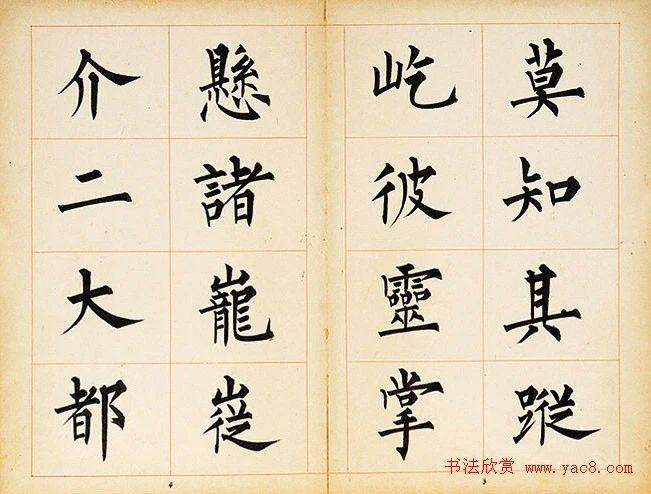 莫知其蹤
屹彼靈掌
懸諸巃嵸
介二大都
书法欣赏 www.yac8.com